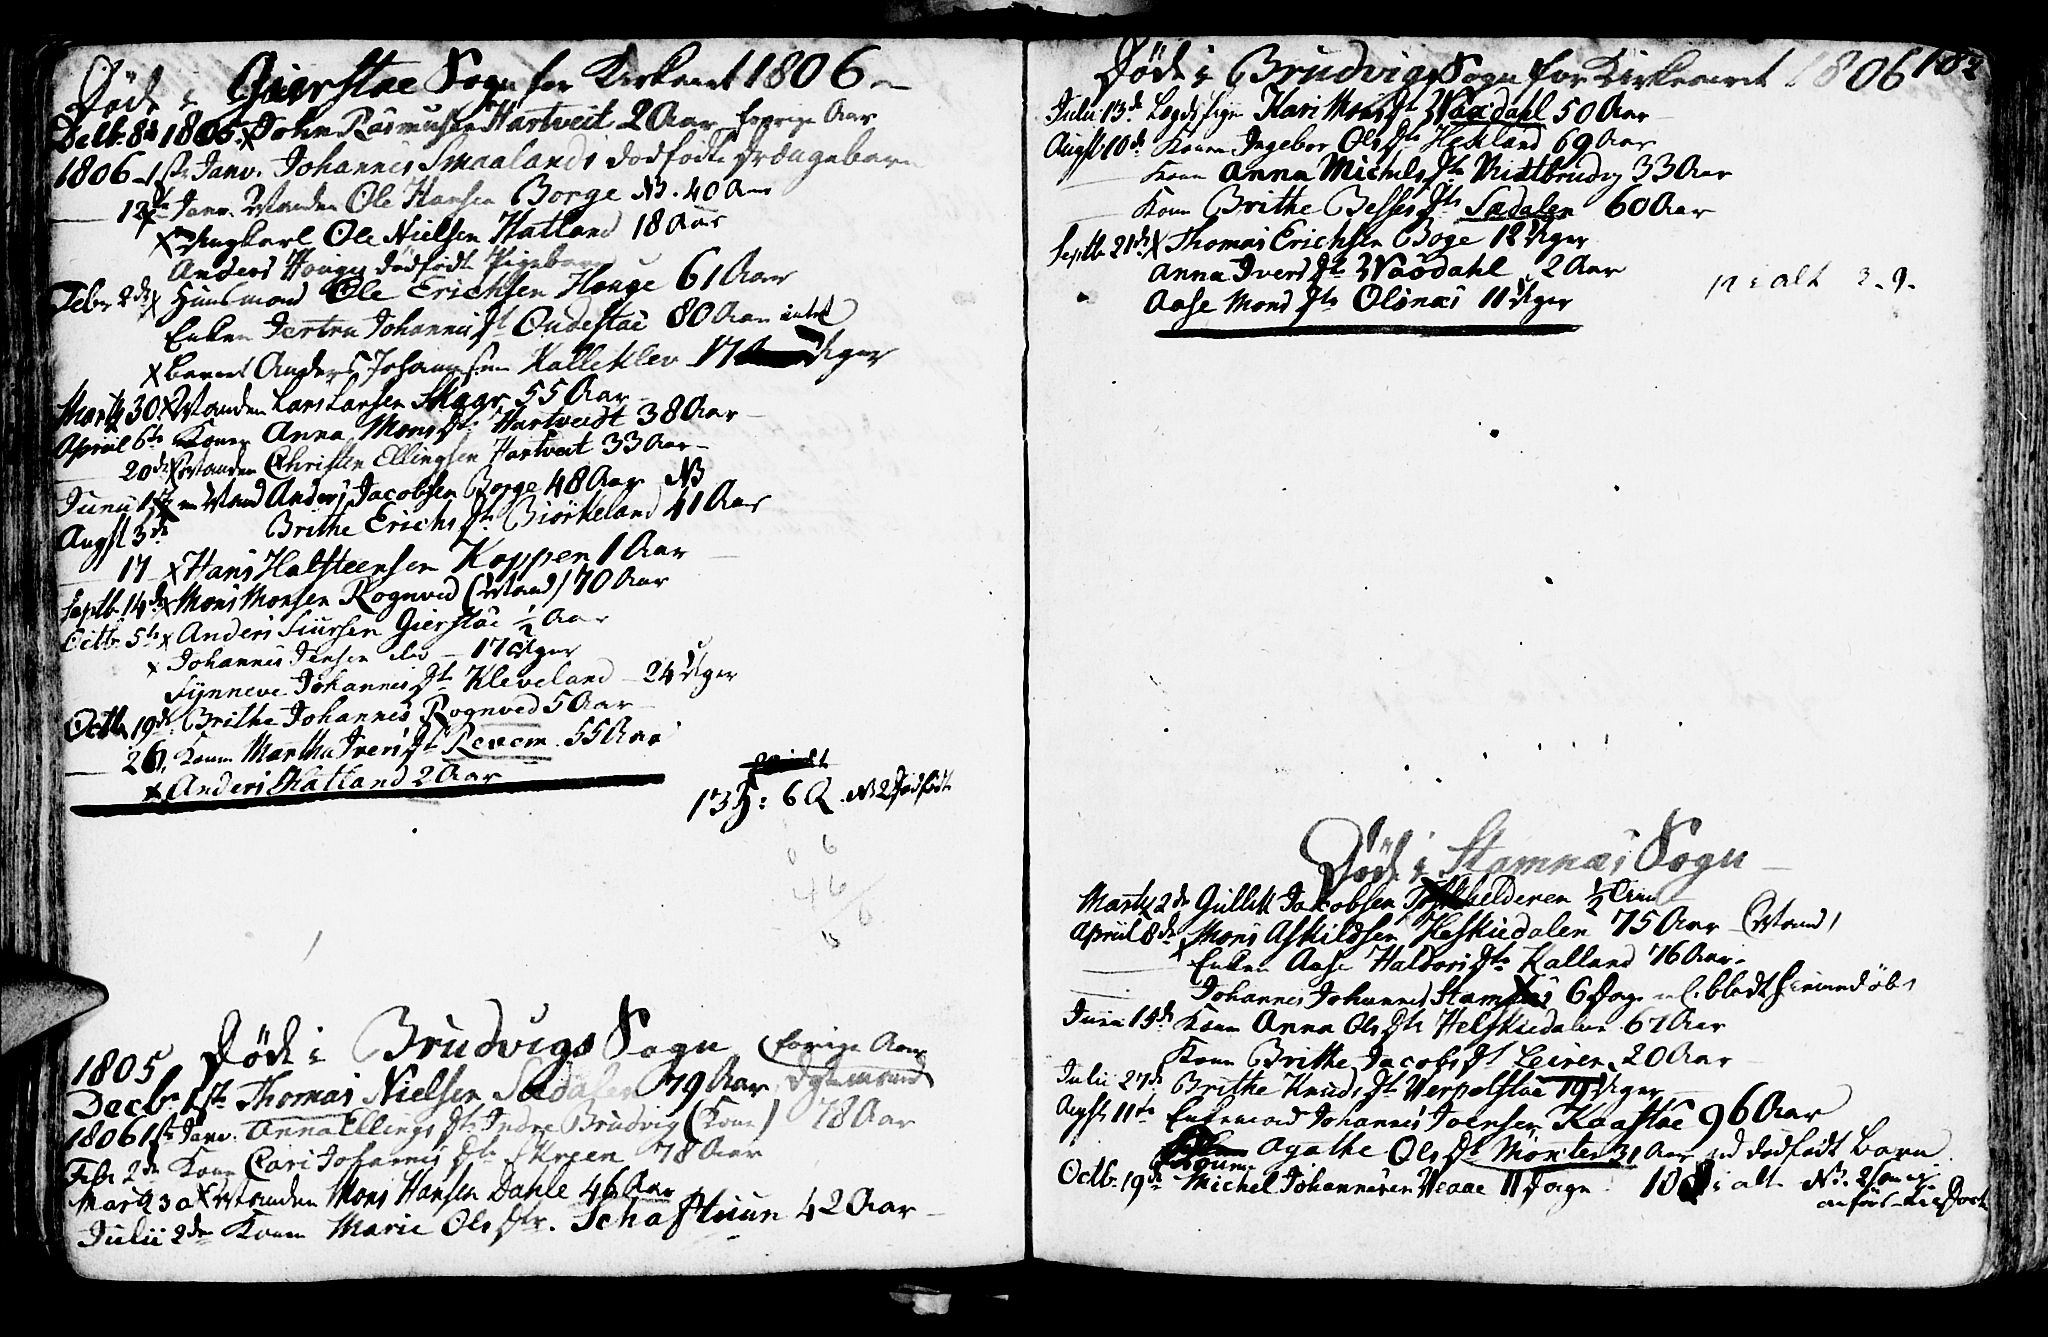 Døde i Gierstae Sogn for Kirkeaaret 1806
Decb. 8de 1805. x John Rasmusen Hartveit 2 Aar forrige Aar
1806 - 1ste Janv. Johannes Smaalands dødfødte Drængebarn
12te Janv. Manden Ole Hansen Borge NB. 40 Aar
x Ungkarl Ole Nielsen Hatland 18 Aar
Anders Houges dødfødte Pigebarn
Febr 2de x Huusmand Ole Erichsen Houge 61 Aar
Enken Jertru Johannis Dt. Oudestae 80 Aar
x Barnet Anders Johannesen Kalleklev 17 Uger
Marty 30 x Manden Lars Larsen Skaar 55 Aar
April 6te Konen Anna Mons Dt. Hartveidt 38 Aar
20de x Manden Christen Ellingsen Hartveit 33 Aar
Junii x en Mand Anders Jacobsen Borge 48 Aar NB
Augst 3de Brithe Erichs Dt. Biørkeland 41 Aar
17 x Hans Halsteensen Koppen 1 Aar
Septb. 14de x Mons Monsen Rognved (Mand) 70 Aar
Octb. 5te x Anders Siursen Gierstae ½ Aar
x Johannes Jensen 17 Uger
Synneve Johannes Dt. Kleveland - 24 Uger
Octb 19de Brithe Johannes Rognved 5 Aar
26. Konen Martha Ivers Dt. Revem 55 Aar
x Anders Hatland 2 Aar
13 H: 6 Q. NB 2 Dødfødte
6
46
6
Døde i Brudvigs Sogn
1805 (forrige Aar
Decbr 1ste Thomas Nielsen Sædalen 79 Aar
1806 1ste Janv. Anna Ellings Dtr Indre Brudvig (Kone) 78 Aar
Febr 2de Kone Cari Johannes Dtr Skreen 78 Aar
Marti 30 x Manden Mons Hansen Dahle 46 Aar
Julii 2den Konen Marie Ols Dtr. Schaftuun 42 Aar
Døde i Brudvigs Sogn for Kirkeaaret 1806 182
Julii 13de Legds Kari Mons Dt Waxdahl 50 Aar
Augst 10de Konen Ingebor Ols Dtr Hekland 69 Aar
Kone Anna Michels Dtr Midtbrudvig 33 Aar
Kone Brithe Besses Dtr Sædalen 60 Aar
Septb. 21de x Thomas Erichsen Boge 12 Uger
Anna Ivers Dt Waxdahl 2 Aar
Aase Mons Dtr Olsnæs 11 Uger
12 i alt 3. 9.
Døde i Stamnæs Sogn
Marty 2de Gullik Jacobsen ½ Aar
April 8de x Mons Askildsen Heskiedalen 75 Aar (Mand)
Enken Aase Haldors Dtr Kalland 76 Aar
Johannes Johannes Stamnæs 6 Dage
Junii 15de Kone Anna Ols Dtr Helskiedalen 67 Aar
Kone Brithe Jacobs Dt Leiren 20 Aar
Julii 27de Brithe Knuds Dt Werpelstae 19 Uger
Augst 11te Enkemand Johannes Joensen Kaastae 96 Aar
Agathe Ols Dt Monten 31 Aar dødfødt Barn
Octb. 19de Michel Johannesen 11 Dage
10 i alt NB.